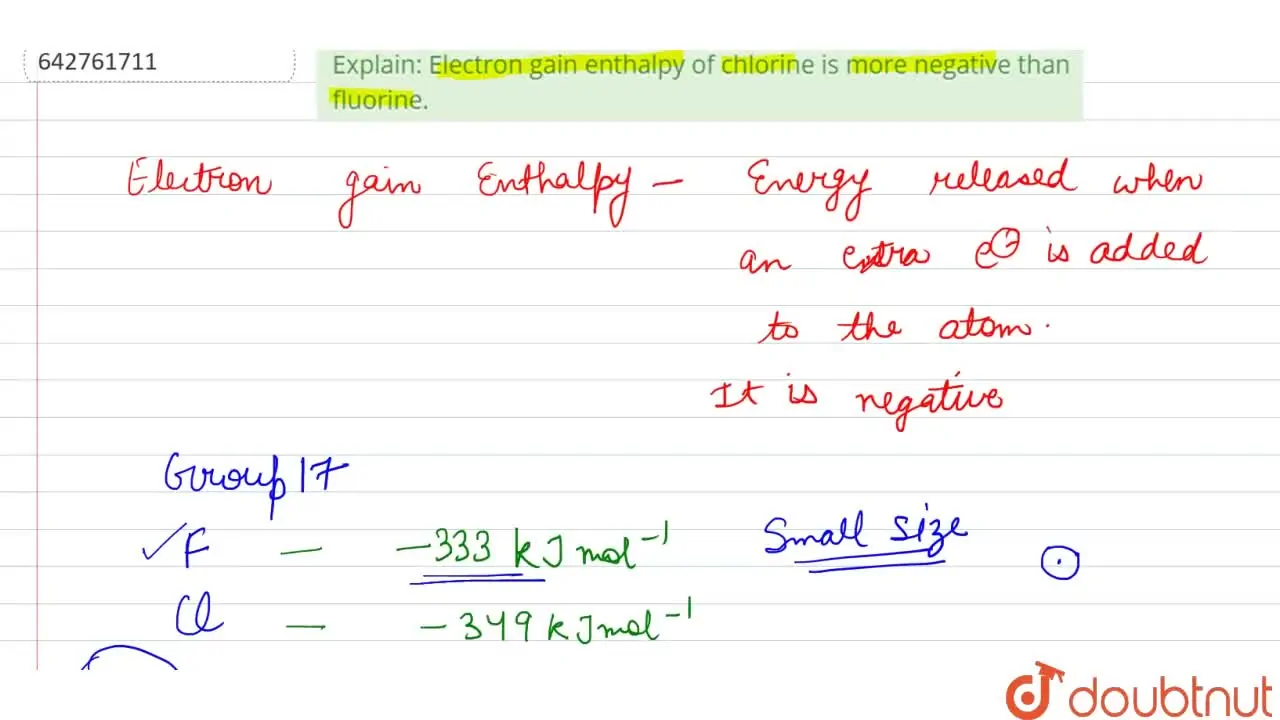 642761711
Explain: Electron gain enthalpy of chlorine is more negative than
fluorine.
Electron gain Enthalpy – Energy released when
an extra e⊖ is added
to the atom.
It is negative
Group 17
✓ F — –333 kJ mol⁻¹ Small size
Cl — –349 kJ mol⁻¹
doubtnut